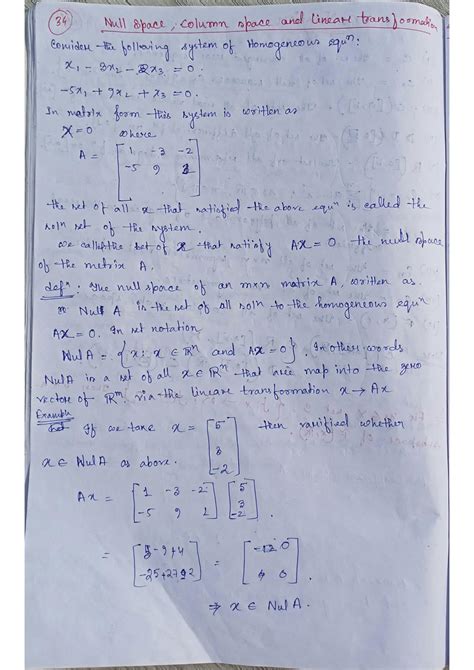 34 Null space, column space and linear transformation
Consider the following system of Homogeneous equⁿ:
x₁ - 3x₂ - 2x₃ = 0.
-5x₁ + 9x₂ + x₃ = 0.
In matrix form this system is written as
X=0 where
A = [1 -3 -2
-5 9 1]
the set of all x that satisfied the above equⁿ is called the
solⁿ set of the system.
we call the set of x that satisfy AX = 0 the null space
of the metrix A.
defⁿ: The null space of an m×n matrix A, written as
Null A is the set of all solⁿ to the homogeneous equⁿ
AX = 0. In set notation
Nul A = {x: x ∈ ℝⁿ and AX = 0}. In others words
Nul A is a set of all x ∈ ℝⁿ that are map into the zero
vector of ℝᵐ via the linear transformation x → Ax
Example
If we take x = [5
3
-2] then varified whether
x ∈ Nul A as above.
Ax = [1 -3 -2
-5 9 1] [5
3
-2].
= [5-9+4
-25+27-2] = [0
0].
⇒ x ∈ Nul A.